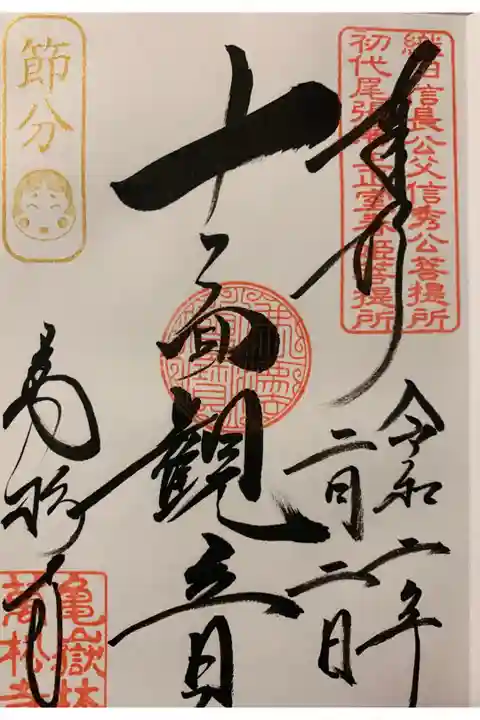 織田信長公父信秀公菩提所
初代尾張藩主正室春姫菩提所
奉拝
令和二年
二月二日
十一面觀音
節分
萬松寺
亀嶽林
萬松寺